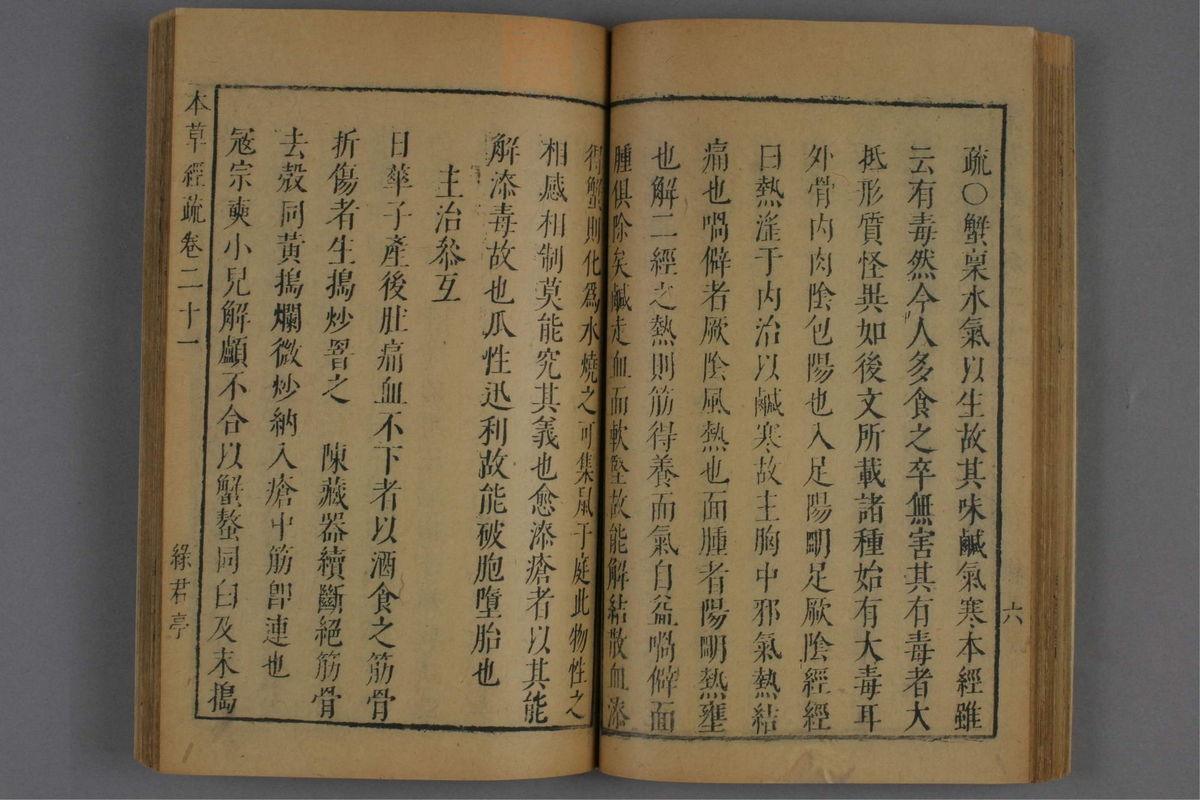 疏○蟹稟水氣以生故其味鹹氣寒本經雖
云有毒然今人多食之卒無害其有毒者大
抵形質怪異如後文所載諸種始有大毒耳
外骨內肉陰包陽也入足陽明足厥陰經經
曰熱淫于內治以鹹寒故主胸中邪氣熱結
痛也喎僻者厥陰風熱也面腫者陽明熱壅
也解二經之熱則筋得養而氣自益喎僻面
腫俱除矣鹹走血而軟堅故能解結散血漆
得蟹則化爲水燒之可集鼠于庭此物性之
相感相制莫能究其義也愈漆瘡者以其能
解漆毒故也爪性迅利故能破胞墮胎也
主治叅互
日華子產後肚痛血不下者以酒食之筋骨
折傷者生搗炒罯之 陳藏器續斷絕筋骨
去殼同黃搗爛微炒納入瘡中筋卽連也
寇宗奭小兒解顱不合以蟹螯同白及末搗
本草經疏 卷二十一
綠君亭
六